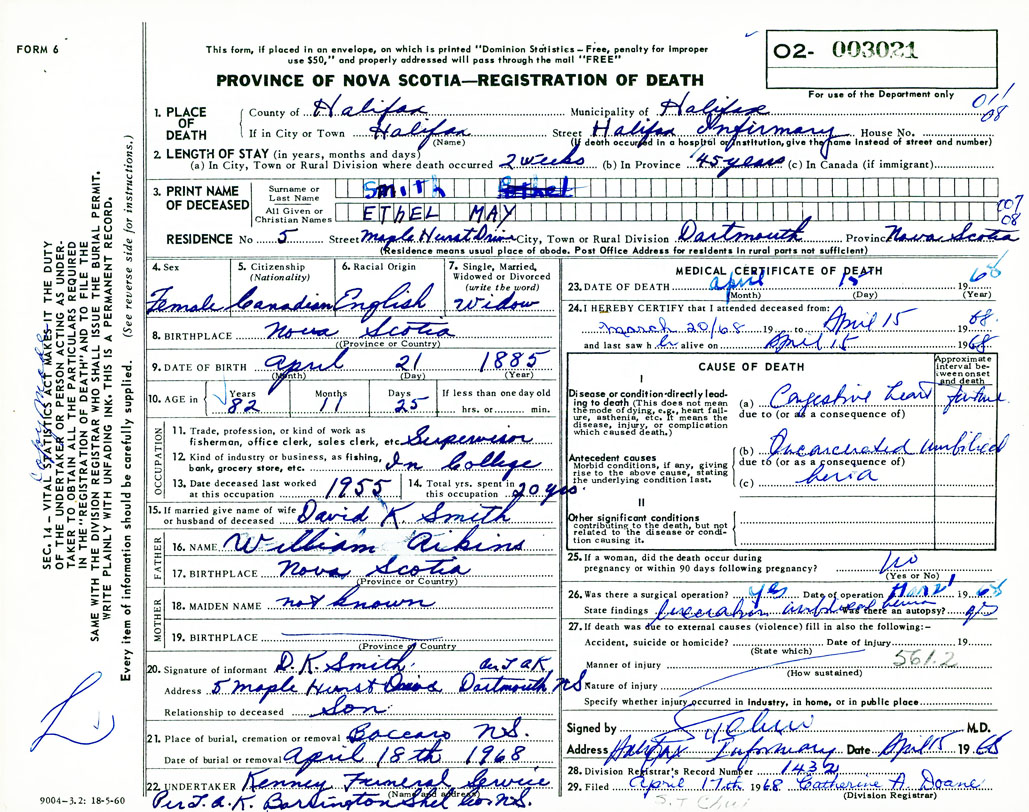 FORM 6
This form, if placed in an envelope, on which is printed "Dominion Statistics – Free, penalty for improper
use $50," and properly addressed will pass through the mail "FREE"
PROVINCE OF NOVA SCOTIA—REGISTRATION OF DEATH
02- 003021
For use of the Department only
1. PLACE OF DEATH
County of Halifax Municipality of Halifax
If in City or Town Halifax Street Halifax Infirmary House No.
(Name) (If death occurred in a hospital or institution, give the name instead of street and number)
2. LENGTH OF STAY (in years, months and days)
(a) In City, Town or Rural Division where death occurred 2 weeks (b) In Province 45 years (c) In Canada (if immigrant)
3. PRINT NAME OF DECEASED
Surname or Last Name Smith Ethel
All Given or Christian Names ETHEL MAY
RESIDENCE No 5 Street Maple Hurst Drive City, Town or Rural Division Dartmouth Province Nova Scotia
(Residence means usual place of abode. Post Office Address for residents in rural parts not sufficient)
4. Sex Female
5. Citizenship (Nationality) Canadian
6. Racial Origin English
7. Single, Married, Widowed or Divorced (write the word) Widow
8. BIRTHPLACE Nova Scotia
(Province or Country)
9. DATE OF BIRTH April 21 1885
(Month) (Day) (Year)
10. AGE in Years 82 Months 11 Days 25 If less than one day old hrs. or min.
OCCUPATION
11. Trade, profession, or kind of work as fisherman, office clerk, sales clerk, etc. Supervisor
12. Kind of industry or business, as fishing, bank, grocery store, etc. In College
13. Date deceased last worked at this occupation 1955
14. Total yrs. spent in this occupation 20 yrs
15. If married give name of wife or husband of deceased David K. Smith
FATHER
16. NAME William Aikins
17. BIRTHPLACE Nova Scotia
(Province or Country)
MOTHER
18. MAIDEN NAME not known
19. BIRTHPLACE
(Province or Country)
20. Signature of informant D. K. Smith
Address 5 Maple Hurst Drive Dartmouth N.S.
Relationship to deceased Son
21. Place of burial, cremation or removal Baccaro N.S.
Date of burial or removal April 18th 1968
22. UNDERTAKER Kenney Funeral Service
(Name and address)
Per T.A.K. Barrington Shel Co. N.S.
MEDICAL CERTIFICATE OF DEATH
23. DATE OF DEATH April 15 1968
(Month) (Day)
24. I HEREBY CERTIFY that I attended deceased from:
March 20/68 19 to April 15 1968
and last saw her alive on April 15 1968
CAUSE OF DEATH
Approximate interval between onset and death
I
Disease or condition directly leading to death (This does not mean the mode of dying, e.g., heart failure, asthenia, etc. It means the disease, injury, or complication which caused death.)
(a) Congestive heart failure
due to (or as a consequence of)
Antecedent causes
Morbid conditions, if any, giving rise to the above cause, stating the underlying condition last.
(b) Incarcerated umbilical
due to (or as a consequence of)
(c) hernia
II
Other significant conditions
contributing to the death, but not related to the disease or condition causing it.
25. If a woman, did the death occur during pregnancy or within 90 days following pregnancy? no
(Yes or No)
26. Was there a surgical operation? yes Date of operation 1968
State findings umbilical hernia Was there an autopsy?
27. If death was due to external causes (violence) fill in also the following:–
Accident, suicide or homicide? Date of injury 19
(State which)
Manner of injury 561.2
(How sustained)
Nature of injury
Specify whether injury occurred in Industry, in home, or in public place
Signed by M.D.
Address Halifax Infirmary Date April 15 1968
28. Division Registrar's Record Number 1432
29. Filed April 17th 1968 Catherine A. Doane
(Division Registrar)
SEC. 14 – VITAL STATISTICS ACT MAKES IT THE DUTY
OF THE UNDERTAKER OR PERSON ACTING AS UNDER-
TAKER TO OBTAIN ALL THE PARTICULARS REQUIRED
IN THE "REGISTRATION OF DEATH" AND TO FILE THE
SAME WITH THE DIVISION REGISTRAR WHO SHALL ISSUE THE BURIAL PERMIT.
WRITE PLAINLY WITH UNFADING INK. THIS IS A PERMANENT RECORD.
Every item of information should be carefully supplied. (See reverse side for instructions.)
9004–3.2: 18-5-60